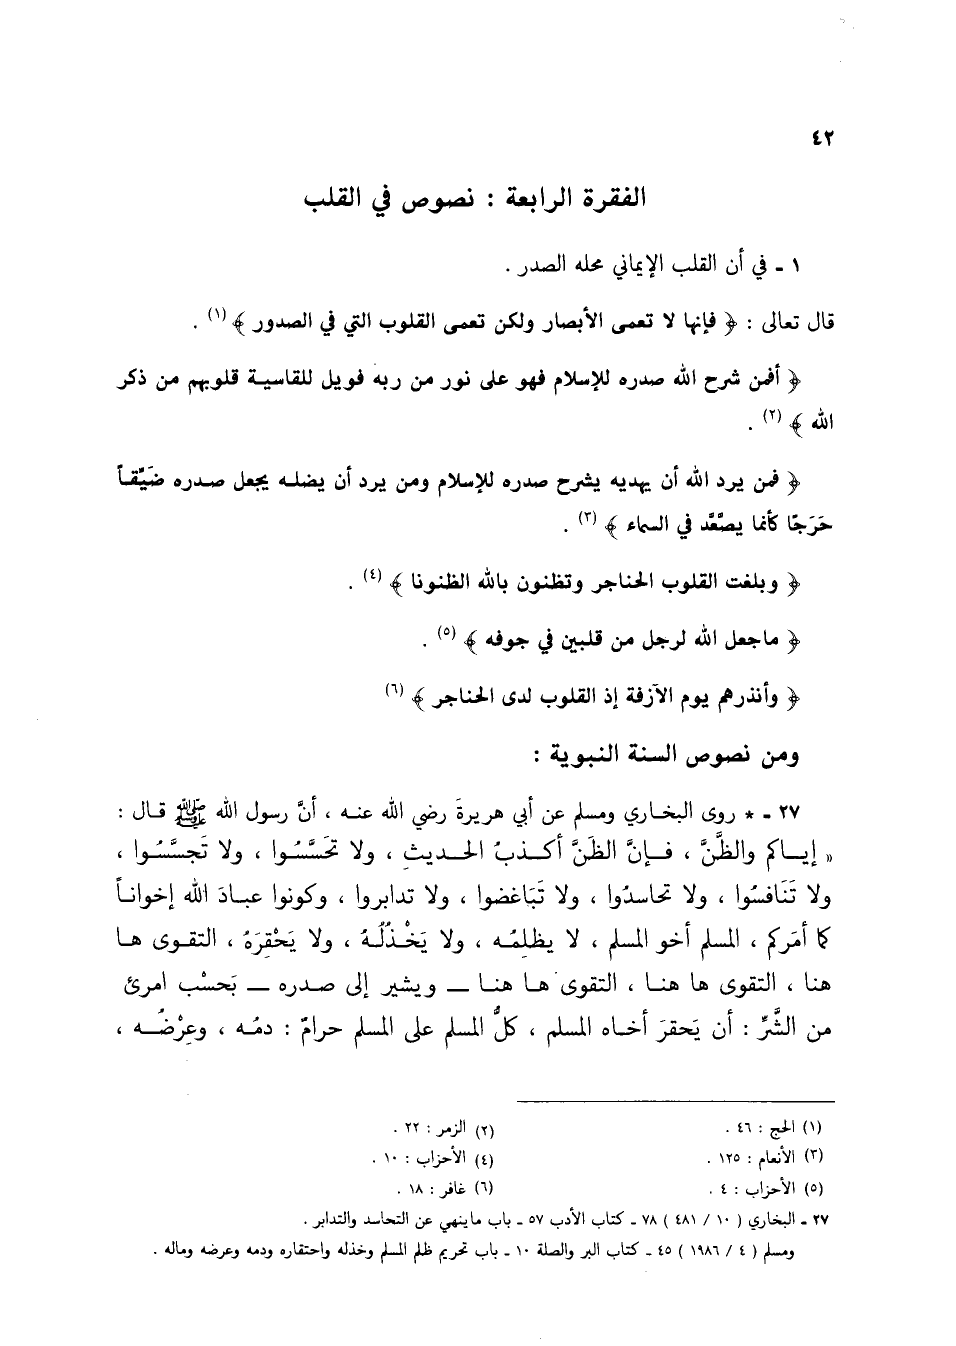 ٤٢
الفقرة الرابعة : نصوص في القلب
١ ـ في أن القلب الإيماني محله الصدر .
قال تعالى : ﴿ فإنها لا تعمى الأبصار ولكن تعمى القلوب التي في الصدور ﴾ (١) .
﴿ أفمن شرح الله صدره للإسلام فهو على نور من ربه فويل للقاسية قلوبهم من ذكر
الله ﴾ (٢) .
﴿ فمن يرد الله أن يهديه يشرح صدره للإسلام ومن يرد أن يضله يجعل صدره ضَيِّقاً
حَرَجًا كأنما يصَّعَّد في السماء ﴾ (٣) .
﴿ وبلغت القلوب الحناجر وتظنون بالله الظنونا ﴾ (٤) .
﴿ ماجعل الله لرجل من قلبين في جوفه ﴾ (٥) .
﴿ وأنذرهم يوم الآزفة إذ القلوب لدى الحناجر ﴾ (٦)
ومن نصوص السنة النبوية :
٢٧ ـ * روى البخاري ومسلم عن أبي هريرةَ رضي الله عنه ، أنَّ رسول الله ﷺ قال :
« إياكم والظَّنَّ ، فإنَّ الظَنَّ أكذبُ الحديث ، ولا تحَسَّسُوا ، ولا تَجسَّسُوا ،
ولا تَنَافسُوا ، ولا تحاسدُوا ، ولا تَبَاغضوا ، ولا تدابروا ، وكونوا عبادَ الله إخواناً
كما أمَركم ، المسلم أخو المسلم ، لا يظلِمُه ، ولا يَخْذُلُهُ ، ولا يَحْقِرَهُ ، التقوى ها
هنا ، التقوى ها هنا ، التقوى ها هنا ــ ويشير إلى صدره ــ بَحسْب امرئ
من الشَّرِّ : أن يَحقرَ أخاه المسلم ، كلُّ المسلم على المسلم حرامٌ : دمُه ، وعِرْضُه ،
(١) الحج : ٤٦ .
(٢) الزمر : ٢٢ .
(٣) الأنعام : ١٢٥ .
(٤) الأحزاب : ١٠ .
(٥) الأحزاب : ٤ .
(٦) غافر : ١٨ .
٢٧ ـ البخاري ( ١٠ / ٤٨١ ) ٧٨ ـ كتاب الأدب ٥٧ ـ باب ماينهي عن التحاسد والتدابر .
ومسلم ( ٤ / ١٩٨٦ ) ٤٥ ـ كتاب البر والصلة ١٠ ـ باب تحريم ظلم المسلم وخذله واحتقاره ودمه وعرضه وماله .